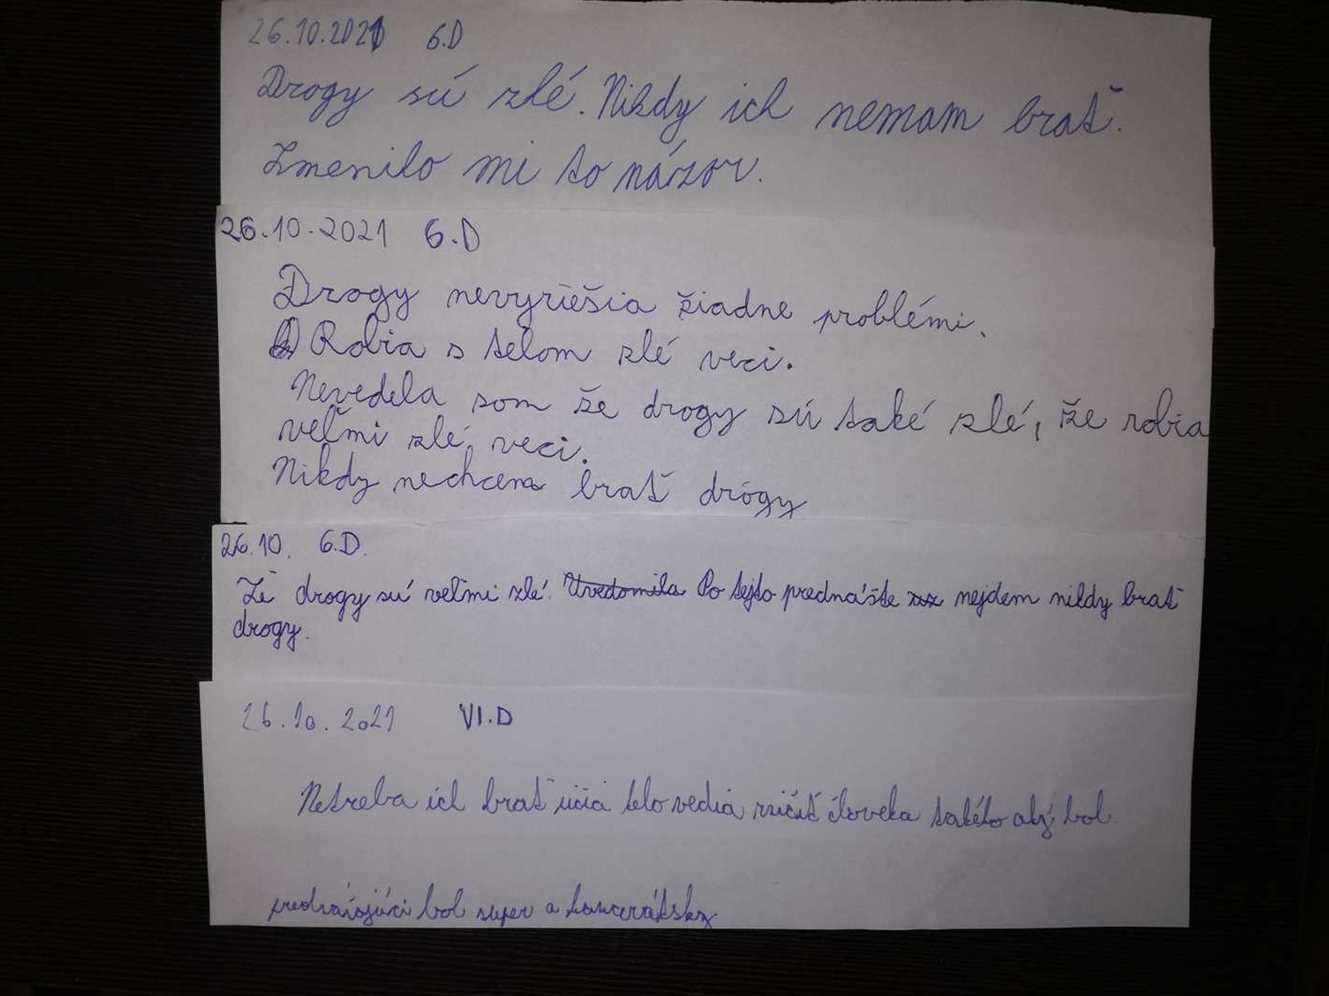 26.10.2021 6.D
Drogy sú zlé. Nikdy ich nemam brať.
Zmenilo mi to názor.
26.10.2021 6.D
Drogy nevyriešia žiadne problémi.
Robia s telom zlé veci.
Nevedela som že drogy sú také zlé, že robia
veľmi zlé veci.
Nikdy nechcem brať drógy
26.10. 6.D.
Že drogy sú veľmi zlé. Uvedomila Po tejto prednáške nejdem nikdy brať
drogy.
26.10.2021 VI.D
Netreba ich brať telo vedia zničiť človeka takéto bol
bol super a